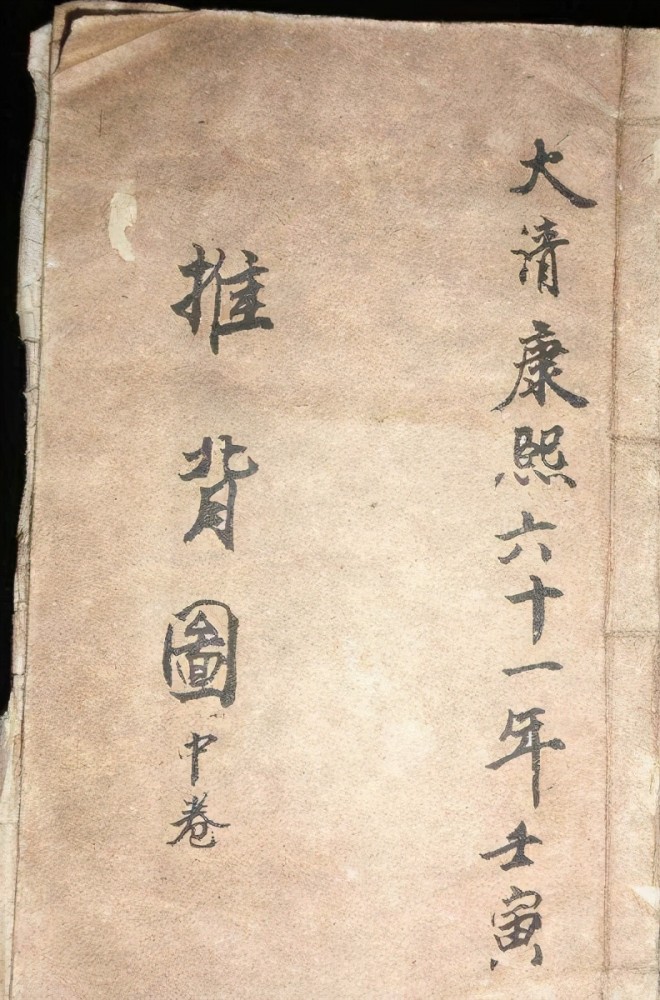 大清康熙六十一年壬寅
推背圖中卷